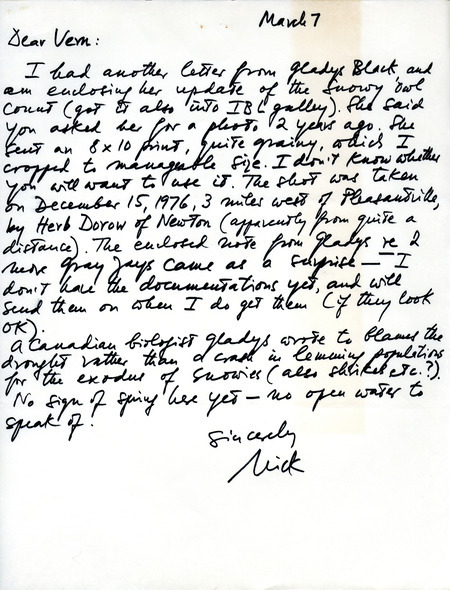 March 7
Dear Vern:
I had another letter from Gladys Black and
am enclosing her update of the Snowy Owl
Count (got it also into IBL galley). She said
you asked her for a photo 2 years ago. She
sent an 8x10 print, quite grainy, which I
cropped to manageable size. I don't know whether
you will want to use it. The shot was taken
on December 15, 1976, 3 miles west of Pleasantville,
by Herb Dorow of Newton (apparently from quite a
distance). The enclosed note from Gladys re 2
more Gray Jays came as a surprise — I
don't have the documentations yet, and will
send them on when I do get them (if they look
OK).
A Canadian biologist Gladys wrote to blames the
drought rather than a crash in lemming populations
for the exodus of Snowies (also shrikes etc.?).
No sign of spring here yet — no open water to
speak of.
Sincerely
Nick